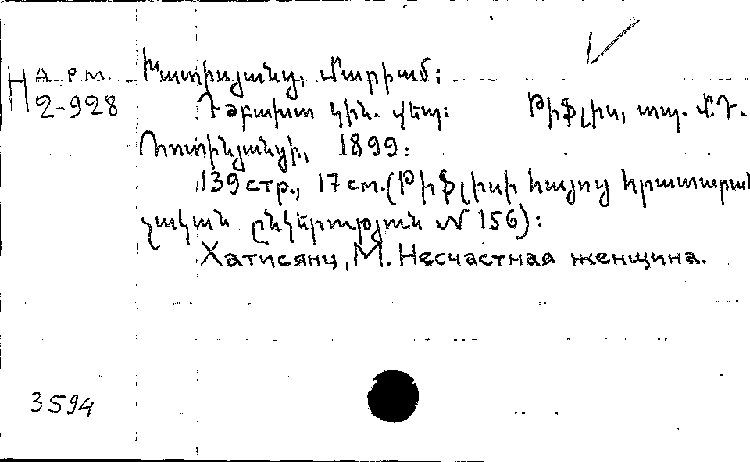 Н А Р М. Խատիսյանց, Մարիամ:
2-928 Դժբախտ կին. վեպ: Թիֆլիս, տպ. Մ.Դ.
Ռոտինյանցի, 1899:
139 стр., 17 см. (Թիֆլիսի հայոց հրատարակ
չական ընկերություն № 156):
Хатисянц, М. Несчастная женщина.
3594